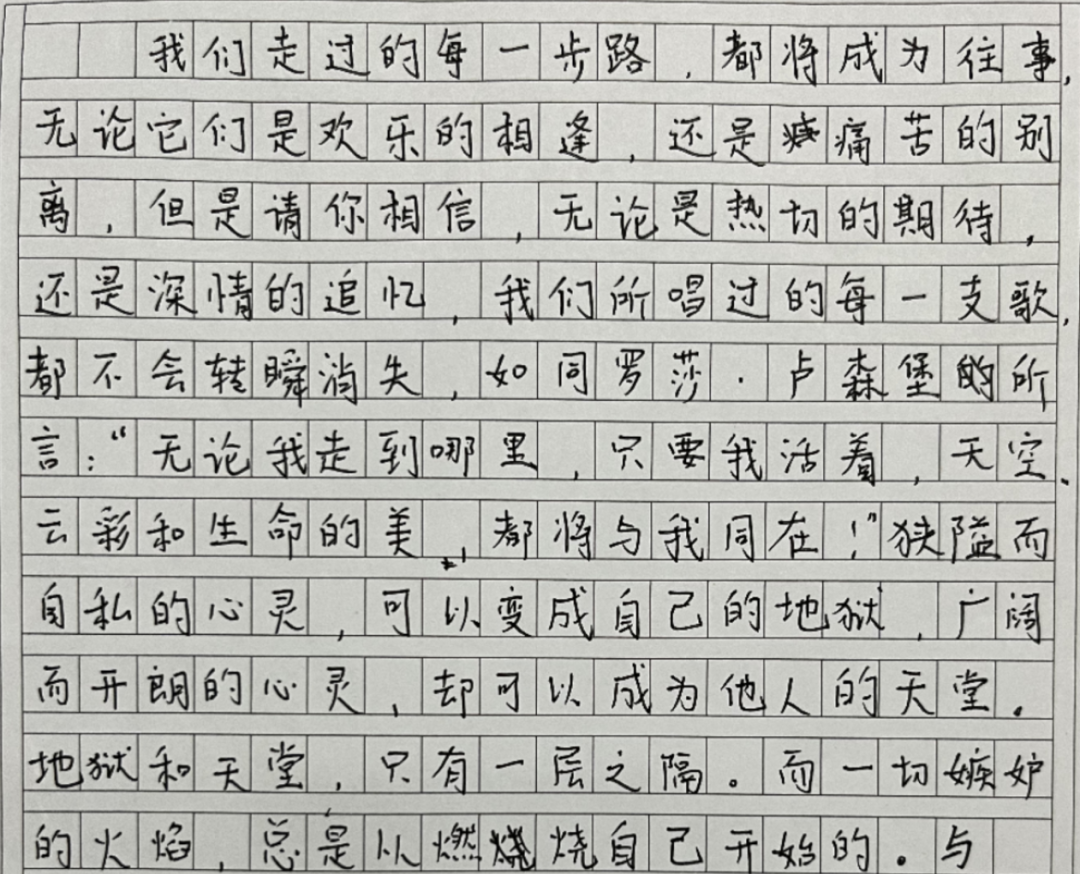 我们走过的每一步路，都将成为往事，
无论它们是欢乐的相逢，还是痛苦的别
离，但是请你相信，无论是热切的期待，
还是深情的追忆，我们所唱过的每一支歌，
都不会转瞬消失，如同罗莎·卢森堡的所
言：“无论我走到哪里，只要我活着，天空、
云彩和生命的美，都将与我同在！”狭隘而
自私的心灵，可以变成自己的地狱，广阔
而开朗的心灵，却可以成为他人的天堂。
地狱和天堂，只有一层之隔。而一切嫉妒
的火焰，总是以燃烧自己开始的。与